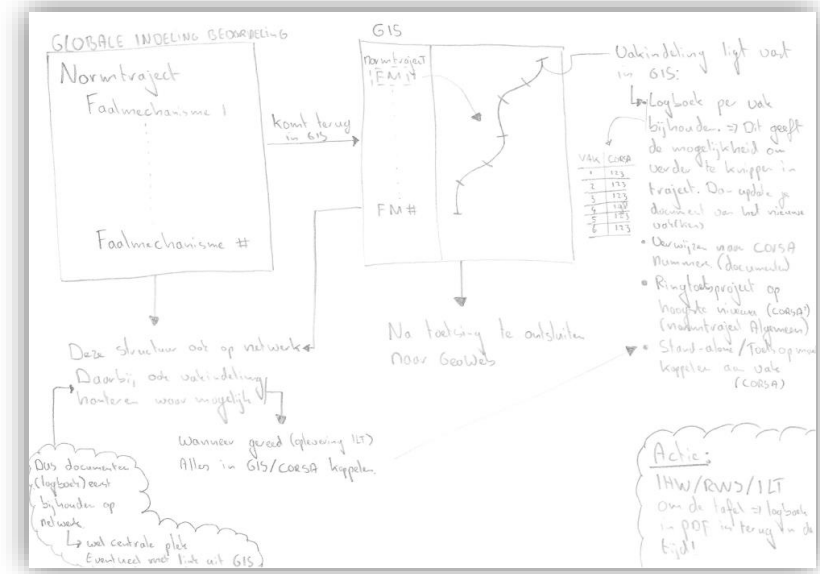 GLOBALE INDELING BEOORDELING
Normtraject
Faalmechanisme 1
Faalmechanisme #
komt terug
in GIS
GIS
Normtraject
FM 1
FM #
Vakindeling ligt vast
in GIS:
Logboek per vak
bijhouden. => Dit geeft
de mogelijkheid om
verder te knippen in
traject. Dan update je
document van het nieuwe
VAK CORSA
1 123
2 123
3 123
4 123
5 123
6 123
• Verwijzen naar CORSA
nummers (documenten)
• Ringtoetsproject op
hoogste niveau (CORSA!)
(normtraject Algemeen)
• Stand-alone/Toets op maat
koppelen aan vak
(CORSA)
Deze structuur ook op netwerk
Daarbij ook vakindeling
hanteren waar mogelijk
Na toetsing te ontsluiten
naar GeoWeb
Wanneer gereed (oplevering ILT)
Alles in GIS/CORSA koppelen.
Dus documenten
(logboek) eerst
bijhouden op
netwerk
wel centrale plek
Eventueel met link uit GIS
Actie:
IHW/RWS/ILT
om de tafel => logboek
in PDF in terug in de
tijd!